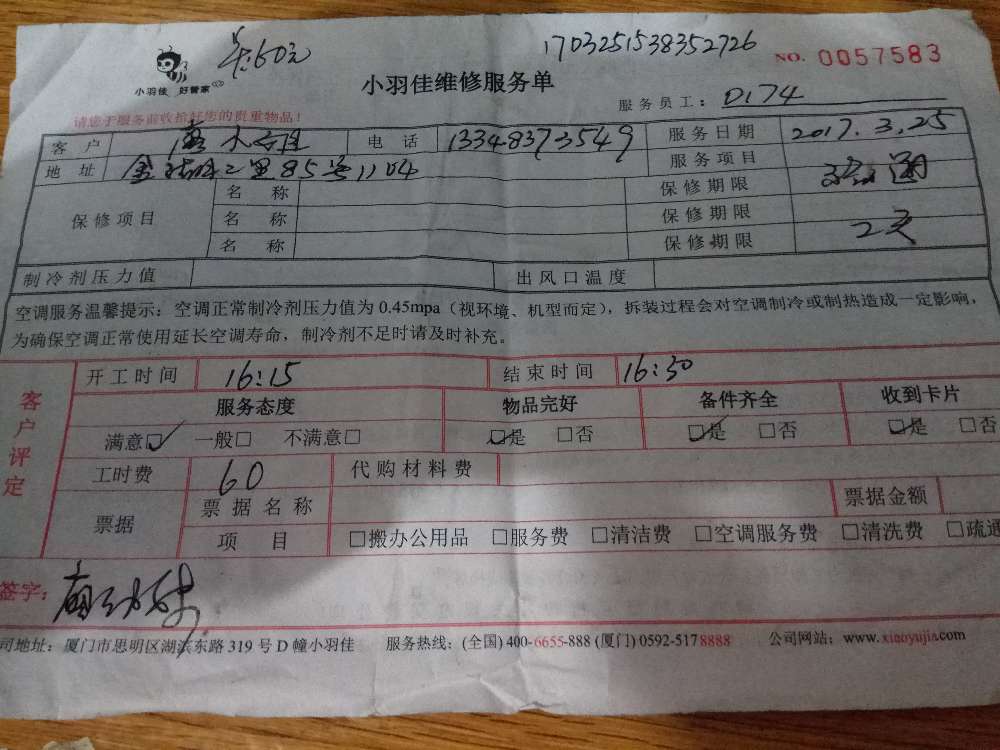 1703251538352726
60元
NO. 0057583
小羽佳 好管家
小羽佳维修服务单
服务员工: D174
请您于服务前收拾好您的贵重物品!
客 户 唐小姐 电 话 13348373549 服务日期 2017.3.25
地 址 二里85号1104 服务项目
保修项目 名 称 保修期限
名 称 保修期限 2天
名 称 保修期限
制冷剂压力值 出风口温度
空调服务温馨提示:空调正常制冷剂压力值为 0.45mpa(视环境、机型而定),拆装过程会对空调制冷或制热造成一定影响,
为确保空调正常使用延长空调寿命,制冷剂不足时请及时补充。
客户评定
开工时间 16:15 结束时间 16:30
服务态度 物品完好 备件齐全 收到卡片
满意☑ 一般□ 不满意□ ☑是 □否 ☑是 □否 ☑是 □否
工时费 60 代购材料费
票据 票据名称 票据金额
项 目 □搬办公用品 □服务费 □清洁费 □空调服务费 □清洗费 □疏通
签字:
司地址:厦门市思明区湖滨东路 319 号 D 幢小羽佳 服务热线:(全国) 400-6655-888 (厦门) 0592-517 8888 公司网站:www.xiaoyujia.com